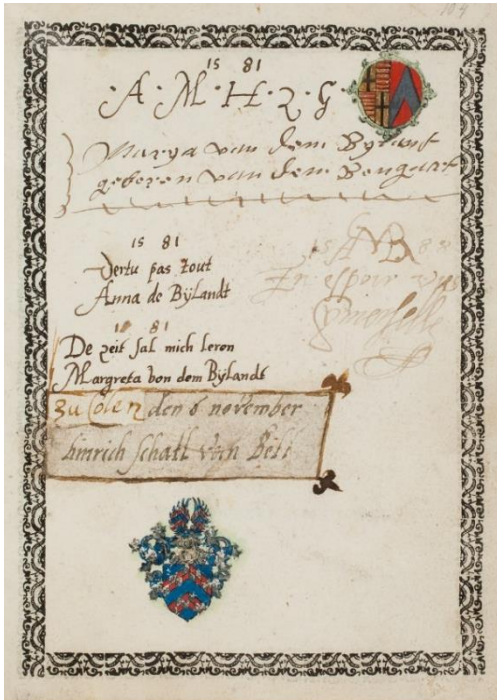 104
15 81
·A·M·H·Z·G
Marya van dem Bylant
geboren van dem Bongart
15 81
Vertu pas tout
Anna de Bÿlandt
15 88
En espoir
15 81
De zeit sal mich leren
Margreta von dem Bÿlandt
Zu Colen den 6 november
hinrich schall van Bell